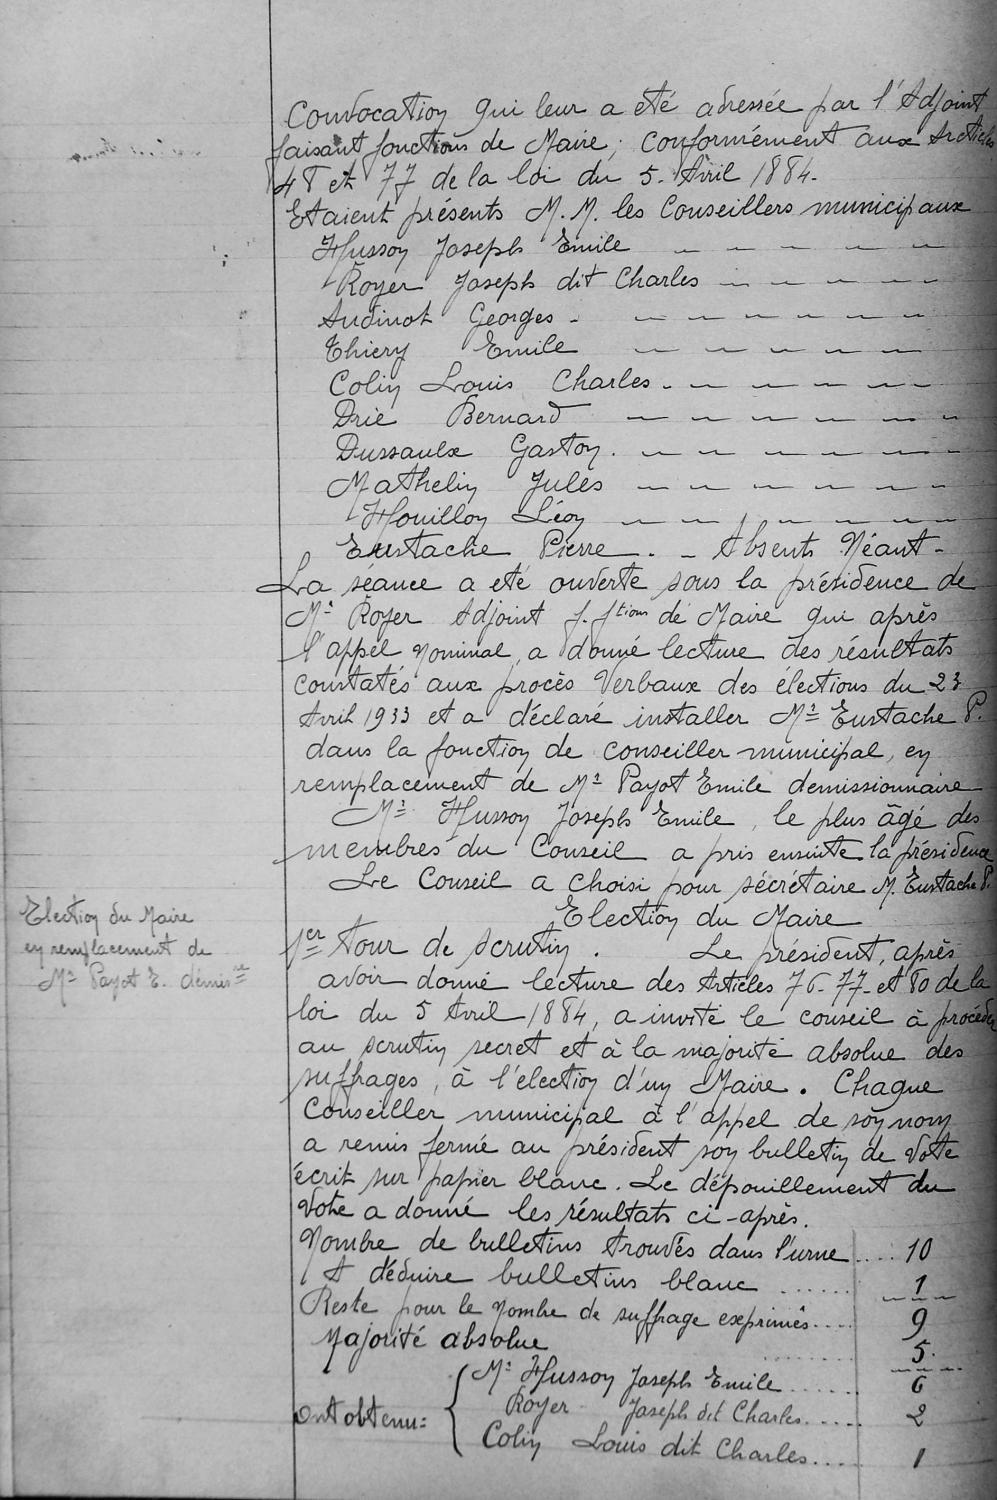 Convocation qui leur a été adressée par l'Adjoint
faisant fonctions de Maire, conformément aux Articles
48 et 77 de la loi du 5 Avril 1884.
Etaient présents M.M. les Conseillers municipaux
Husson Joseph Emile
Royer Joseph dit Charles
Audinot Georges
Thiery Emile
Colin Louis Charles
Drie Bernard
Dussaulx Gaston
Mathelin Jules
Houillon Léon
Eustache Pierre. - Absents Néant -
La séance a eté ouverte sous la présidence de
Mr Royer Adjoint f. ftions de Maire qui après
l'appel nominal, a donné lecture des résultats
constatés aux procès Verbaux des élections du 23
Avril 1933 et a déclaré installer Mr Eustache P.
dans la fonction de conseiller municipal, en
remplacement de Mr Payot Emile demissionnaire
Mr Husson Joseph Emile, le plus âgé des
membres du Conseil a pris ensuite la présidence
Le Conseil a choisi pour sécrétaire M. Eustache P.
Election du Maire
Election du Maire
en remplacement de
Mr Payot E. démisre
1er tour de scrutin. Le président, après
avoir donné lecture des Articles 76-77-et 80 de la
loi du 5 Avril 1884, a invité le conseil à procéder
au scrutin secret et à la majorité absolue des
suffrages, à l'élection d'un Maire. Chaque
Conseiller municipal à l'appel de son nom
a remis fermé au président son bulletin de vote
écrit sur papier blanc. Le dépouillement du
Vote a donné les résultats ci-après.
Nombre de bulletins trouvés dans l'urne .... 10
A déduire bulletins blanc ...... 1
Reste pour le Nombre de suffrage exprimés .... 9
Majorité absolue ........ 5
Mr Husson Joseph Emile ...... 6
Ont obtenu: Royer Joseph dit Charles ..... 2
Colin Louis dit Charles .... 1